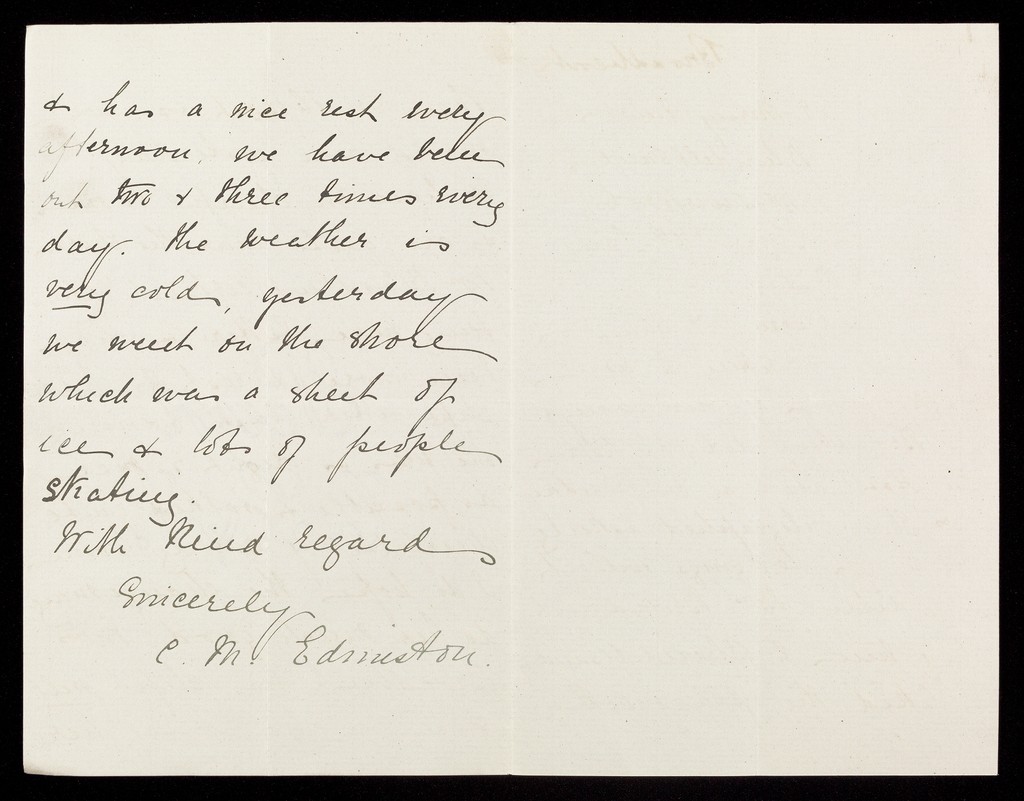 & has a nice rest every
afternoon, we have been
out two & three times every
day. the weather is
very cold, yesterday
we went on the shore
which was a sheet of
ice & lots of people
skating.
With kind regards
Sincerely
C. M. Edmiston.